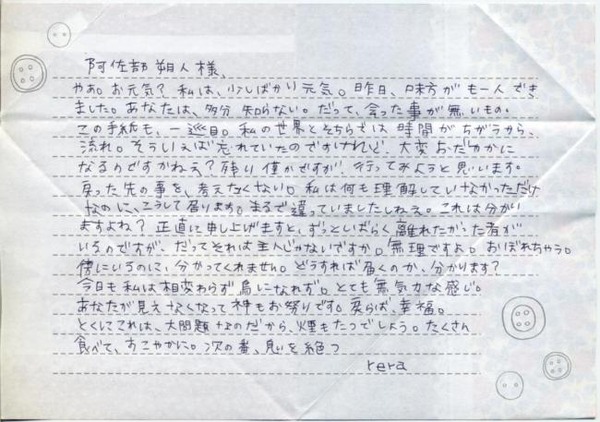 阿佐部 朔人 様、
やあ。お元気？ 私は、少しばかり元気。昨日、味方がも一人でき
ました。あなたは、多分 知らない。だって、会った事が無いもの。
この手紙も、一巡目。私の世界とそちらでは 時間がちがうから、
流れ。そういえば 忘れていたのですけれど、大変 おだやかに
なるのですかねえ？ 残り 僅かですが、行ってみようと思います。
戻った先の事を、考えたくない。私は何も理解していなかっただけ
なのに、こうして居ります。まるで違っていましたしねえ。これは分かい
ますよね？ 正直に申し上げますと、ずっとしばらく離れたかった有が
いるのですが、だってそれは主人じゃないですか。無理ですよ。おぼれちゃう。
傍にいるのに、分かってくれません。どうすれば届くのか、分かります？
今日も私は相変わらず 鳥になれず。とても無気力な感じ。
あなたが見えなくなって 神もお祭りです。戻らば、幸福。
とくしてこれは、大問題なのだから、煙もたつでしょう。たくさん
食べて、すこやかに。次の番、息いを絶つ
rera